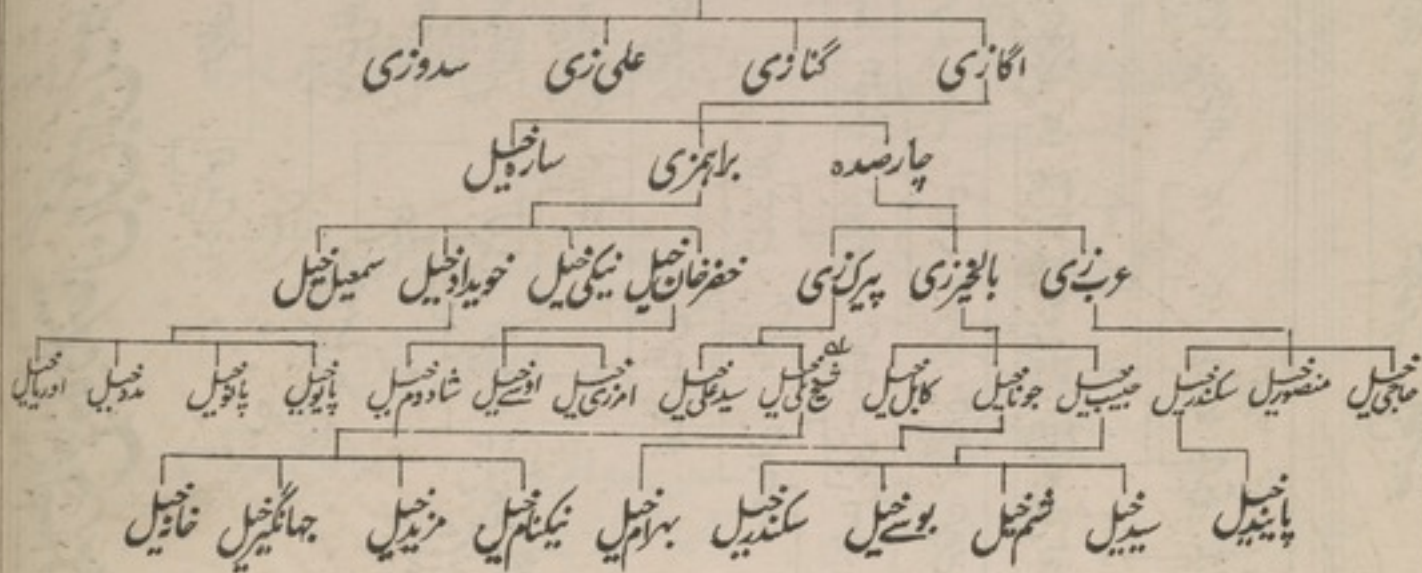 اگازی گنازی علی زی سدوزی
چارصدہ براہمزی سارہ خیل
عرب زی بالخیرزی پیرک زی خضر خان خیل نیکی خیل خویداد خیل سمعیل خیل
حاجی خیل منصور خیل سکندر خیل حبیب خیل جونا خیل کابل خیل شیخ علی خیل سید علی خیل امرزی خیل اوسے خیل شادوم خیل پایو خیل پاکو خیل مدد خیل اوریا خیل
پایندہ خیل سید خیل بوسے خیل سکندر خیل بہرام خیل نیکنام خیل مزید خیل جہانگیر خیل